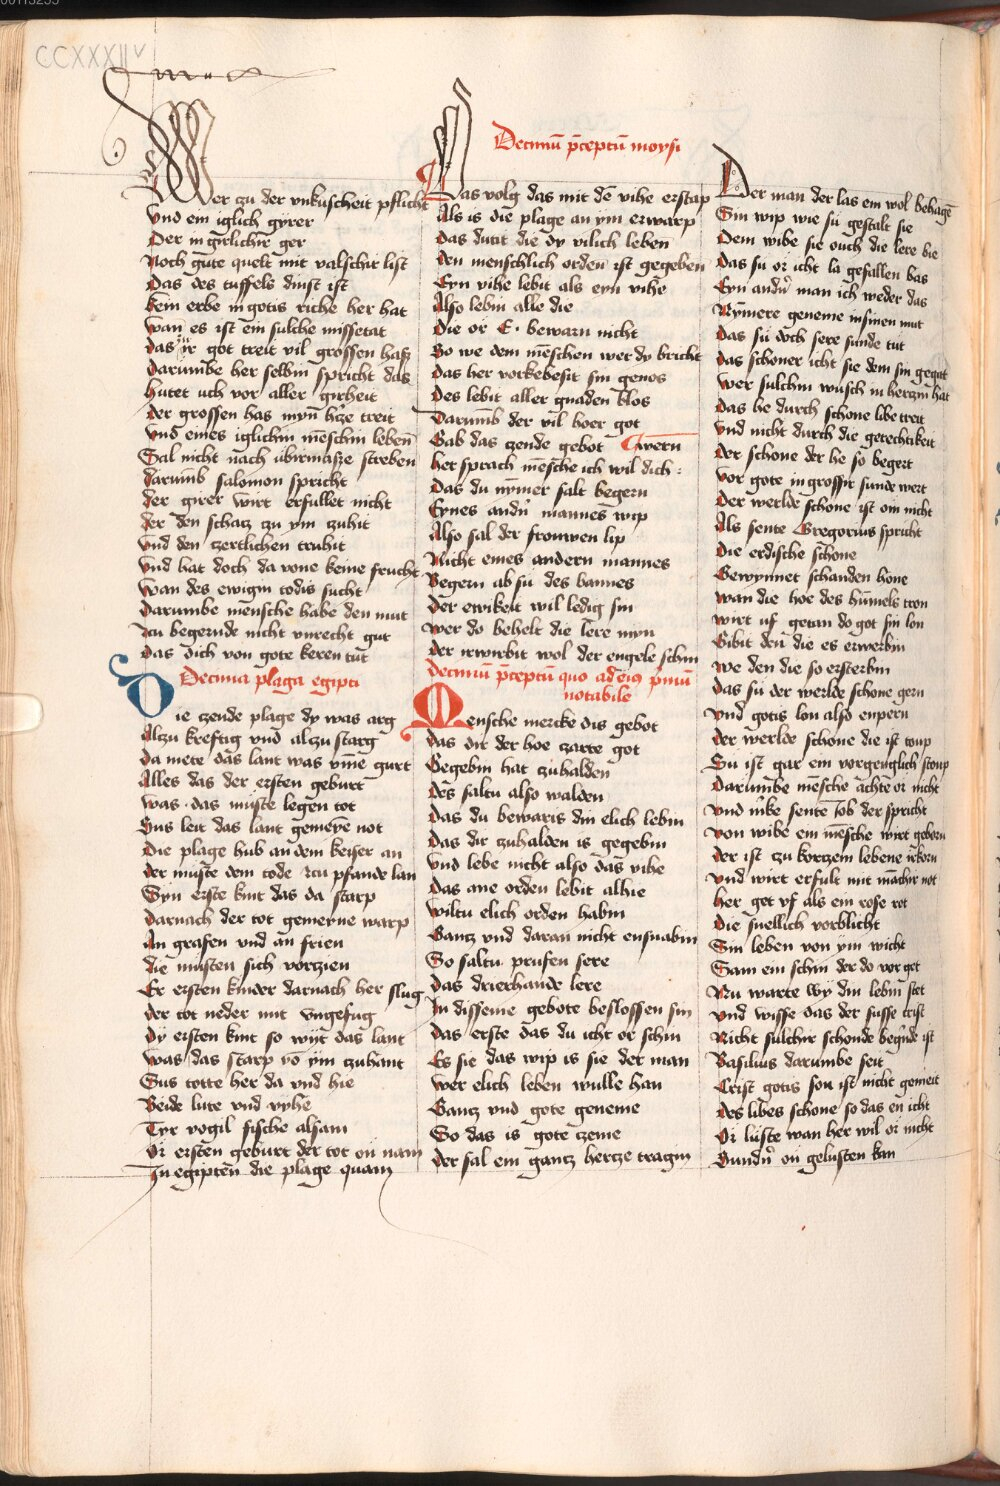 CCXXXII v
Wer zu der vnkuscheit pflicht
Vnd ein iglich gyrer
Der in girlichir ger
Noch gute quelt mit valschir list
Das des tuffels dinst ist
kein erbe in gotis riche her hat
wan es ist ein sulche missetat
das ir got treit vil grossen hasz
Darumbe her selbin spricht das
hutet uch vor aller girheit
der grossen has myn hˀze treit
vnd eines iglichin mēschin leben
Sal nicht nach ubirmasze streben
darūmb salomon spricht
der girer wirt erfullet nicht
der den schatz zu ym zuhit
vnd den zertlichen truhit
vnd hat doch da vone keine frucht
wan des ewigin todis sucht
darumbe mensche habe den mut
zu begernde nicht vnrecht gut
das dich von gote keren tut
Decima plaga egipti
Die zende plage dy was arg
Alzu kreftig vnd alzu starg
da mete das lant was vm̄e gurt
Alles das der ersten geburt
was das muste legen tot
Sus leit das lant gemeȳe not
die plage hub an dem keiser an
der muste dem tode zcu pfande lan
Syn erste kint das da starp
darnach der tot gemeyne warp
An grafen vnd an frien
die musten sich vorzien
Er ersten kinder darnach her slug
der tot neder mit vngefug
dy ersten kint so wyt das lant
was das starp vō ym zuhant
Sus totte her da vnd hie
Beide lute vnd vyhe
Tyr vogil fische alsam
di ersten geburt der tot on nam
In egipten die plage quam
Decimū p̄ceptū moysi
Das volg das mit dē vihe erstarp
Als is die plage an ym erwarp
das dutit die dy vilich leben
den menschlich orden ist gegeben
Eyn vihe lebit als eyn vihe
Also lebin alle die
die or E. bewarn nicht
So we dem mēschen wer dy bricht
das her vorkebesit sin genos
des lebit aller gnaden blos
darumb der vil hoer got
Gab das zende gebot
her sprach mēsche ich wil dich wern
das du nymer salt begern
Eynes andˀn mannes wip
Also sal der frouwen lip
Nicht eines andern mannes
Begern ab su des bannes
der ewikeit wil ledig sin
wer do behelt die lere myn
der irwirbit wol der engele schin
Decimū p̄ceptū quo ad eius p̄mū
notabile
Mensche mercke dis gebot
das dir der hoe zarte got
Gegebin hat zuhalden
des saltu also walden
das du bewaris din elich lebin
das dir zuhalden is gegebin
vnd lebe nicht also das vihe
das ane orden lebit alhie
wiltu elich orden habin
Gantz vnd daran nicht ensnabin
So saltu prufen sere
das drierhande lere
In disseme gebote beslossen sin
das erste das du icht or schin
Es sie das wip is sie der man
wer elich leben wulle han
Gantz vnd gote geneme
So das is gote zeme
der sal ein gantz hertze tragin
Der man der las em wol behagē
Sin wip wie su gestalt sie
Dem wibe sie ouch die lere bie
das su or icht la gefallen bas
Eyn andˀn man ich weder das
Nymere geneme in sinen mut
das su doch sere sunde tut
das schoner icht sie dem sin gegat
wer sulchin wusch in herczin hat
das he durch schone libe treit
vnd nicht durch die gerechtikeit
der schone der he so begert
vor gote in grosser sunde wert
der werlde schone ist om nicht
Als sente Gregorius spricht
die erdische schone
Gewynnet schanden hone
wan die hoe des hūmels tron
wirt uf getan do got sin lon
Gibit den die es erwerbin
we den die so ersterbin
das su der werlde schone gern
vnd gotis lon also enpern
der werlde schone die ist toup
Su ist gar ein vorgenglich stoup
darumbe mēsche achte or nicht
vnd mˀke sente Iob der spricht
von wibe ein mēsche wirt geborn
der ist zu korczem lebene irkorn
vnd wirt erfult mit mācher not
her get vf als ein rose rot
die snellich vorblicht
Sin leben von ym wicht
Sam ein schin der do vor get
Nu warte wy din lebin stet
vnd wisse das der susse crist
Nicht sulchir schonde begˀnde ist
Basilius darumbe seit
Crist gotis son ist nicht gemeit
des libes schone so das en icht
Di luste wan her wil oi nicht
Sundˀ on gelusten kan